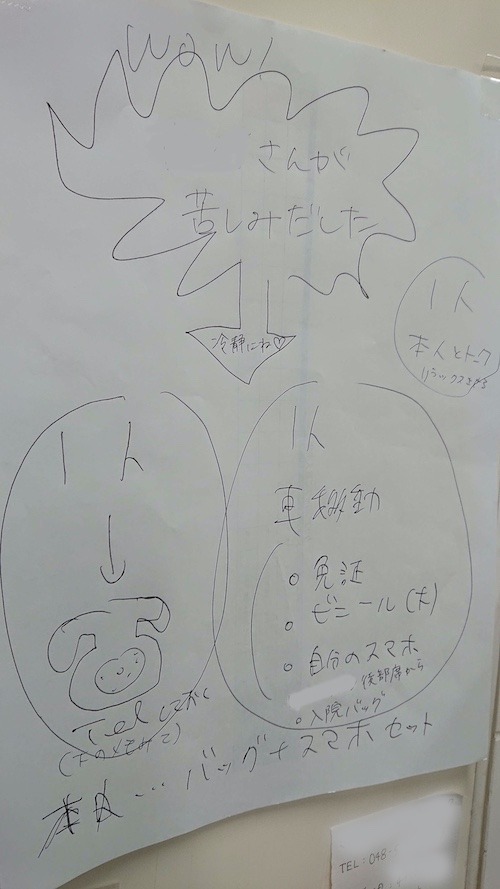 wow!
さんが
苦しみだした
冷静にね♡
1人
本人とトーク
リラックスさせる
1人
↓
Telしておく
(下のメモみて)
1人
車移動
○ 免証
○ ビニール(大)
○ 自分のスマホ
後部席から
○ 入院バッグ
本人…バッグ+スマホセット
TEL:048-